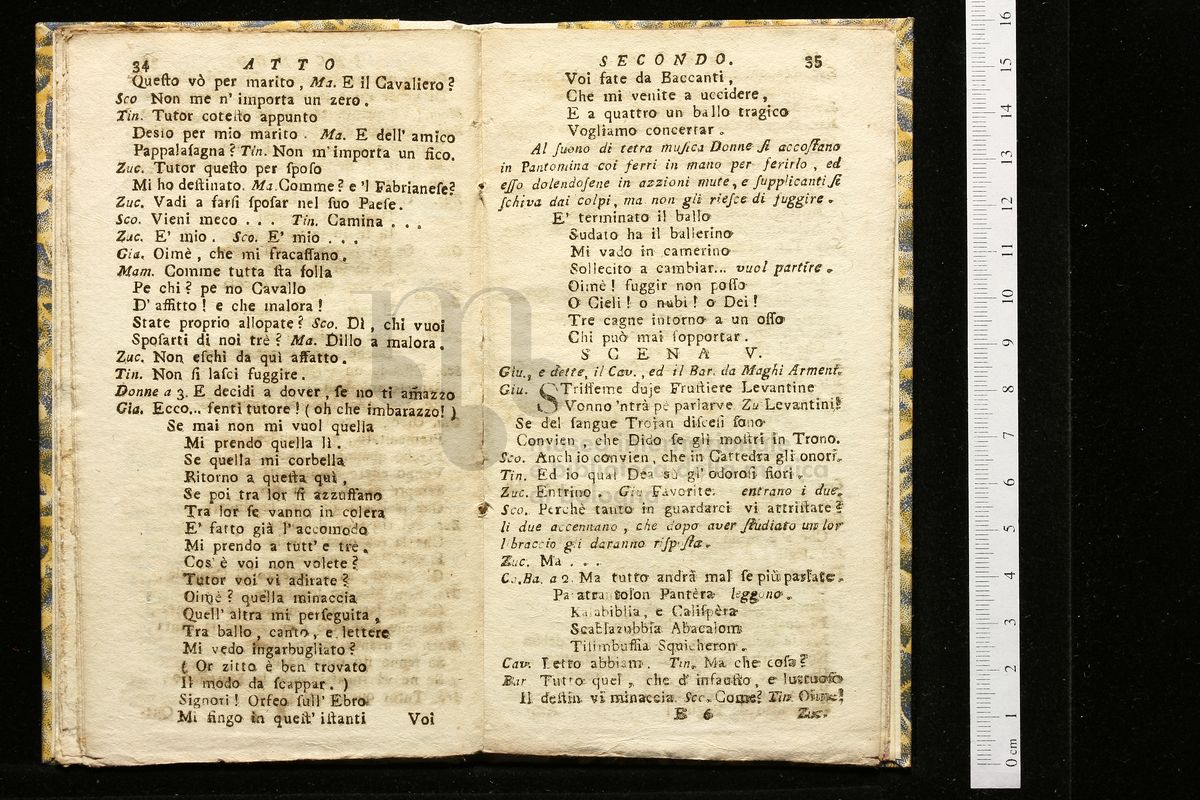 34 A T T O
Queſto vò per marito, Ma. E il Cavaliero?
Sco Non me n' importa un zero.
Tin. Tutor coteſto appunto
Deſio per mio marito. Ma. E dell' amico
Pappalaſagna? Tin. Non m'importa un fico.
Zuc. Tutor queſto per ſpoſo
Mi ho deſtinato. Ma.Comme? e 'l Fabrianeſe?
Zuc. Vadi a farſi ſpoſar nel ſuo Paeſe.
Sco. Vieni meco . . . . Tin. Camina . . .
Zuc. E' mio. Sco. E' mio . . .
Gia. Oimè, che mi fracaſſano.
Mam. Comme tutta ſta folla
Pe chi? pe no Cavallo
D' affitto! e che malora!
State proprio allopate? Sco. Dì, chi vuoi
Spoſarti di noi trè? Ma. Dillo a malora.
Zuc. Non eſchi da quì affatto.
Tin. Non ſi laſci fuggire.
Donne a 3. E decidi a dover, ſe no ti am̃azzo
Gia. Ecco... ſenti tutore! (oh che imbarazzo!)
Se mai non mi vuol quella
Mi prendo quella lì.
Se quella mi corbella
Ritorno a queſta quì,
Se poi tra lor ſi azzuffano
Tra lor ſe vanno in colera
E' fatto già l' accomodo
Mi prendo a tutt' e tre.
Cos' è voi non volete?
Tutor voi vi adirate?
Oimè? quella minaccia
Quell' altra mi perſeguita,
Tra ballo, canto, e lettere
Mi vedo ingarbugliato?
( Or zitto è ben trovato
Il modo da ſcappar. )
Signori! Orfeo ſull' Ebro
Mi fingo in queſt' iſtanti Voi
SECONDO. 35
Voi fate da Baccanti,
Che mi venite a uccidere,
E a quattro un ballo tragico
Vogliamo concertar.
Al ſuono di tetra muſica Donne ſi accoſtano
in Pantomina coi ferri in mano per ferirlo, ed
eſſo dolendoſene in azzioni mute, e ſupplicanti ſi
ſchiva dai colpi, ma non gli rieſce di fuggire.
E' terminato il ballo
Sudato ha il ballerino
Mi vado in camerino
Sollecito a cambiar... vuol partire.
Oimè! fuggir non poſſo
O Cieli! o nubi! o Dei!
Tre cagne intorno a un oſſo
Chi può mai ſopportar.
S C E N A V.
Giu., e dette, il Cav., ed il Bar. da Maghi Arment.
Giu. STriſſeme duje Fruſtiere Levantine
Vonno 'ntrà pe parlarve Zu Levantini?
Se del ſangue Trojan diſceſi ſono
Convien, che Dido ſe gli moſtri in Trono.
Sco. Anch io convien, che in Cattedra gli onori.
Tin. Ed io qual Dea sù gl' odoroſi fiori.
Zuc. Entrino. Giu Favorite. entrano i due.
Sco. Perchè tanto in guardarci vi attriſtate?
li due accennano, che dopo aver ſtudiato un lor
libraccio gli daranno riſpoſta.
Zuc. Ma . . .
Ca.Ba. a 2. Ma tutto andrà mal ſe più parlate.
Pa atra tolon Pantèra leggono.
Kalabiblia, e Caliſpèra
Scablazubbia Abacalom
Tilimbuffia Squicheron.
Cav. Letto abbiam. Tin. Ma che coſa?
Bar Tutto quel, che d' infauſto, e luttuoſo
Il deſtin vi minaccia. Sco. Come? Tin. Oime!
B 6 Zuc.